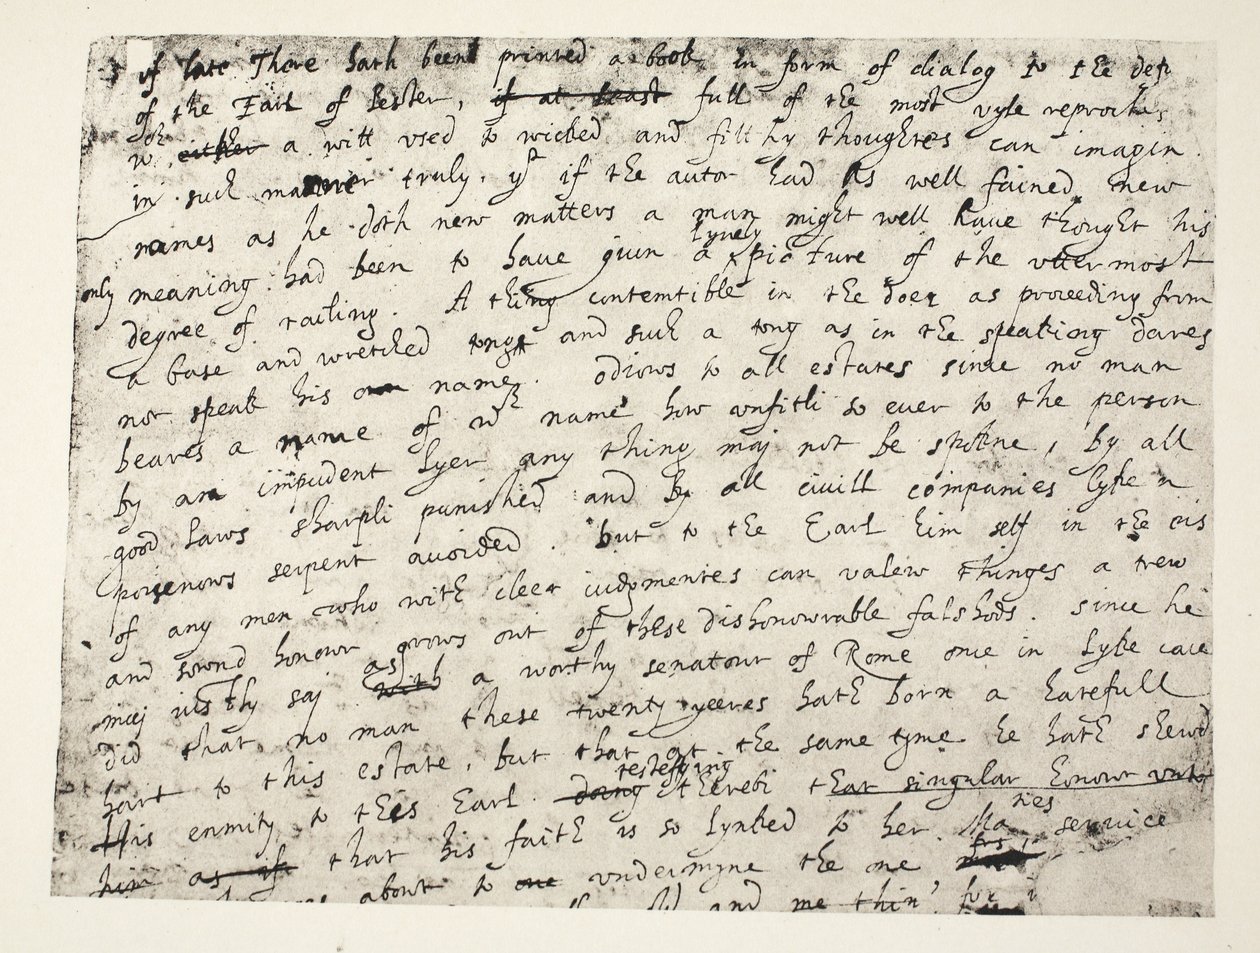 of late There hath been printed a book in form of dialog to the def
of the Earl of lester, if at least full of the most vyle reproches
wch either a witt vsed to wicked and filthy thoughtes can imagin
in such manner truly. yt if the autor had as well fained new
names as he doth new matters a man might well have thought his
only meaning had been to have givn a lyvely picture of the vttermost
degree of railing. A thing contemtible in the doer as proceeding from
a base and wretched tong and such a tong as in the speaking dares
not speak his own name. odiows to all estates since no man
beares a name of wch name how vnfitli so ever to the person
by an impudent lyer any thing maj not be spokne, by all
good laws sharpli punished and by all civill companies lyke a
poisenows serpent avoided. but to the Earl him self in the eis
of any men who with cleer iudgmentes can valew thinges a trew
and sownd honour grows out of these dishonowrable falshods. since he
maj iustly saj with as a worthy senatour of Rome once in lyke case
did that no man these twenty yeeres hath born a hatefull
hart to this estate, but that at the same tyme he hath shewd
His enmity to this Earl doing testefying therebi that singular honour vnto
him as if that his faith is so lynked to her Maties service
about to one vndermyne the one
and me thin for